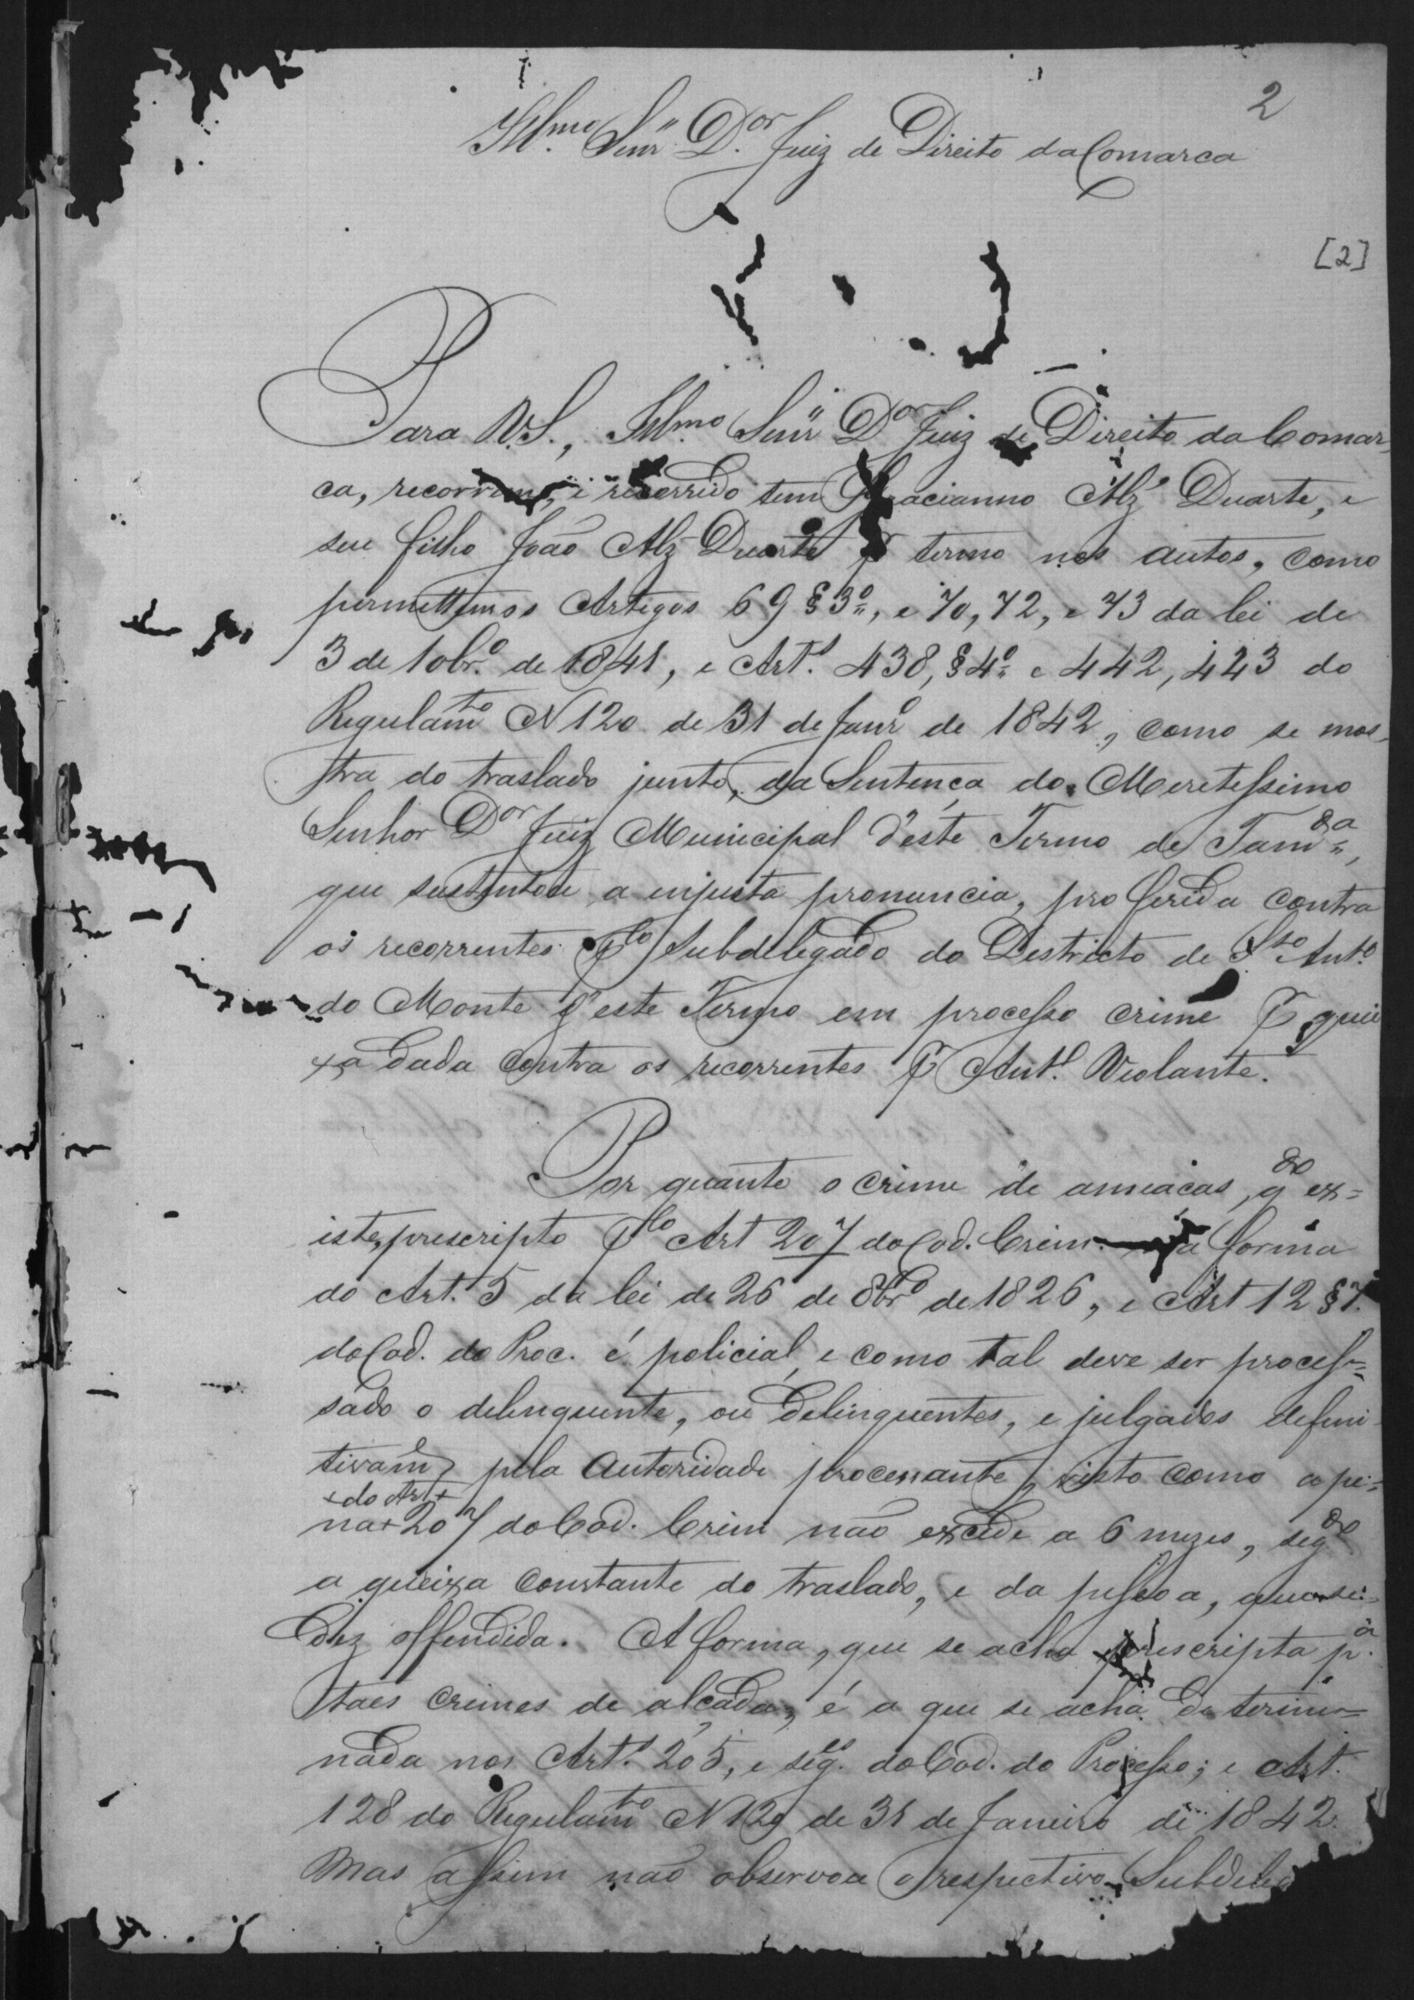 2
Illmo Senr Dor Juiz de Direito da Comarca
[2]
Para V.S., Illmo Senr Dor Juiz de Direito da Comar
ca, recorrem, e recorrido tem Gracianno Alz Duarte, e
seu filho João Alz Duarte p termo nos autos, como
permittem os Artigos 69 §3º, e 70, 72, e 73 da lei de
3 de 10brº de 1841, e Arts. 438, §4º e 442, 443 do
Regulamto N 120 de 31 de Janrº de 1842, como se mos
tra do traslado junto, da Sentença do Meretissimo
Senhor Dor Juiz Municipal d'este Termo de Tamdа,
que sustentou a injusta pronuncia, proferida contra
os recorrentes plo Subdelegado do Destricto de Sto Anto
do Monte d'este Termo em processo crime p quei
xa dada contra os recorrentes p Anto Violante.
Por quanto o crime de ameaças, qdo ex=
iste, prescripto plo Art 207 do Cod. Crim. na forma
do Art. 5 da lei de 26 de 8brº de 1826, e Art 12 §7.
do Cod. do Proc. é policial, e como tal deve ser proces=
sado o delinquente, ou delinquentes, e julgados defini
tivamte pela Autoridade processante, visto como a pe=
+do Art+
na+207 do Cod. Crim não excede a 6 mezes, segdo
a queixa constante do traslado, e da pessoa, que se=
diz offendida. A forma, que se acha prescripta pª
taes crimes de alçada, é a que se acha determi=
nada nos Arts. 205, e segs. do Cod. do Processo; e Art.
128 do Regulamto N 120 de 31 de Janeiro de 1842.
Mas assim não observou o respectivo Subdeleg